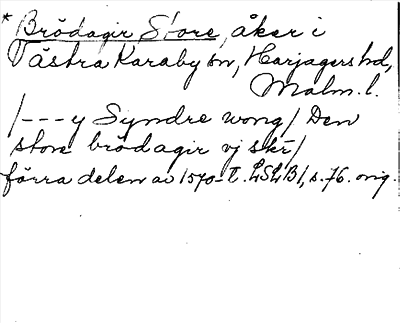 * Brödagir Store, åker i
Västra Karaby sn, Harjagers hd,
Malm. l.
/---y Syndre wong/ Den
store brödagir vj skr/
förra delen av 1570-t. LSLB1, s. 76. orig.